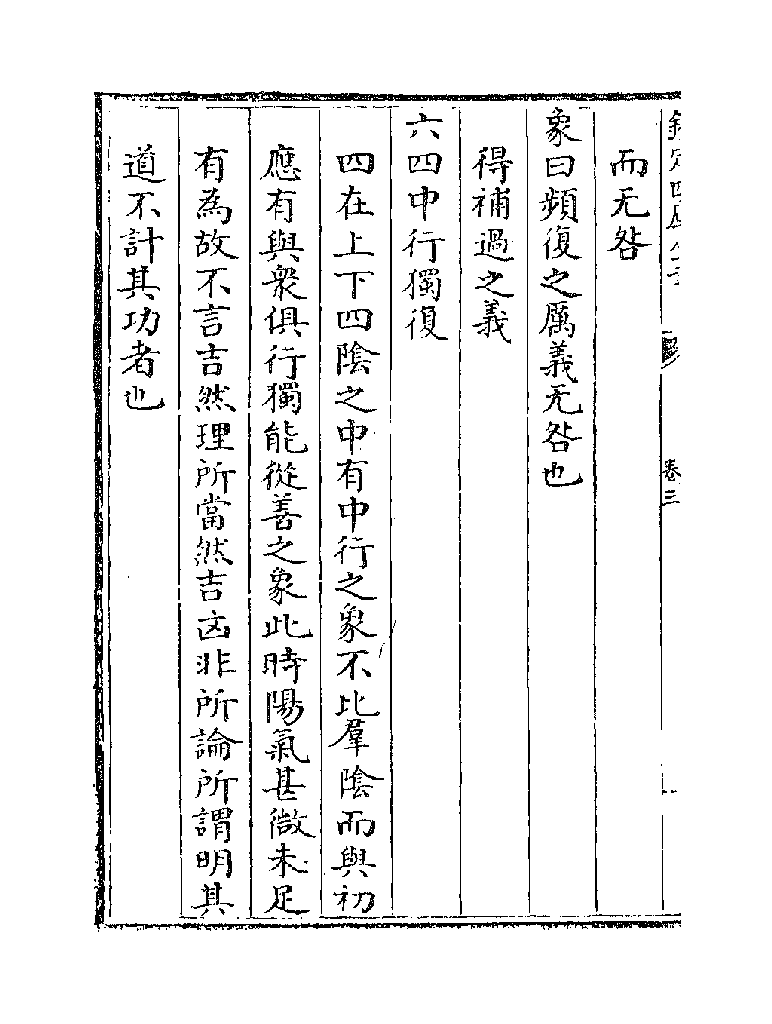 而无咎
象曰頻復之厲義无咎也
得補過之義
六四中行獨復
四在上下四陰之中有中行之象不比羣陰而與初
應有與衆俱行獨能從善之象此時陽氣甚微未足
有為故不言吉然理所當然吉凶非所論所謂明其
道不計其功者也
卷三